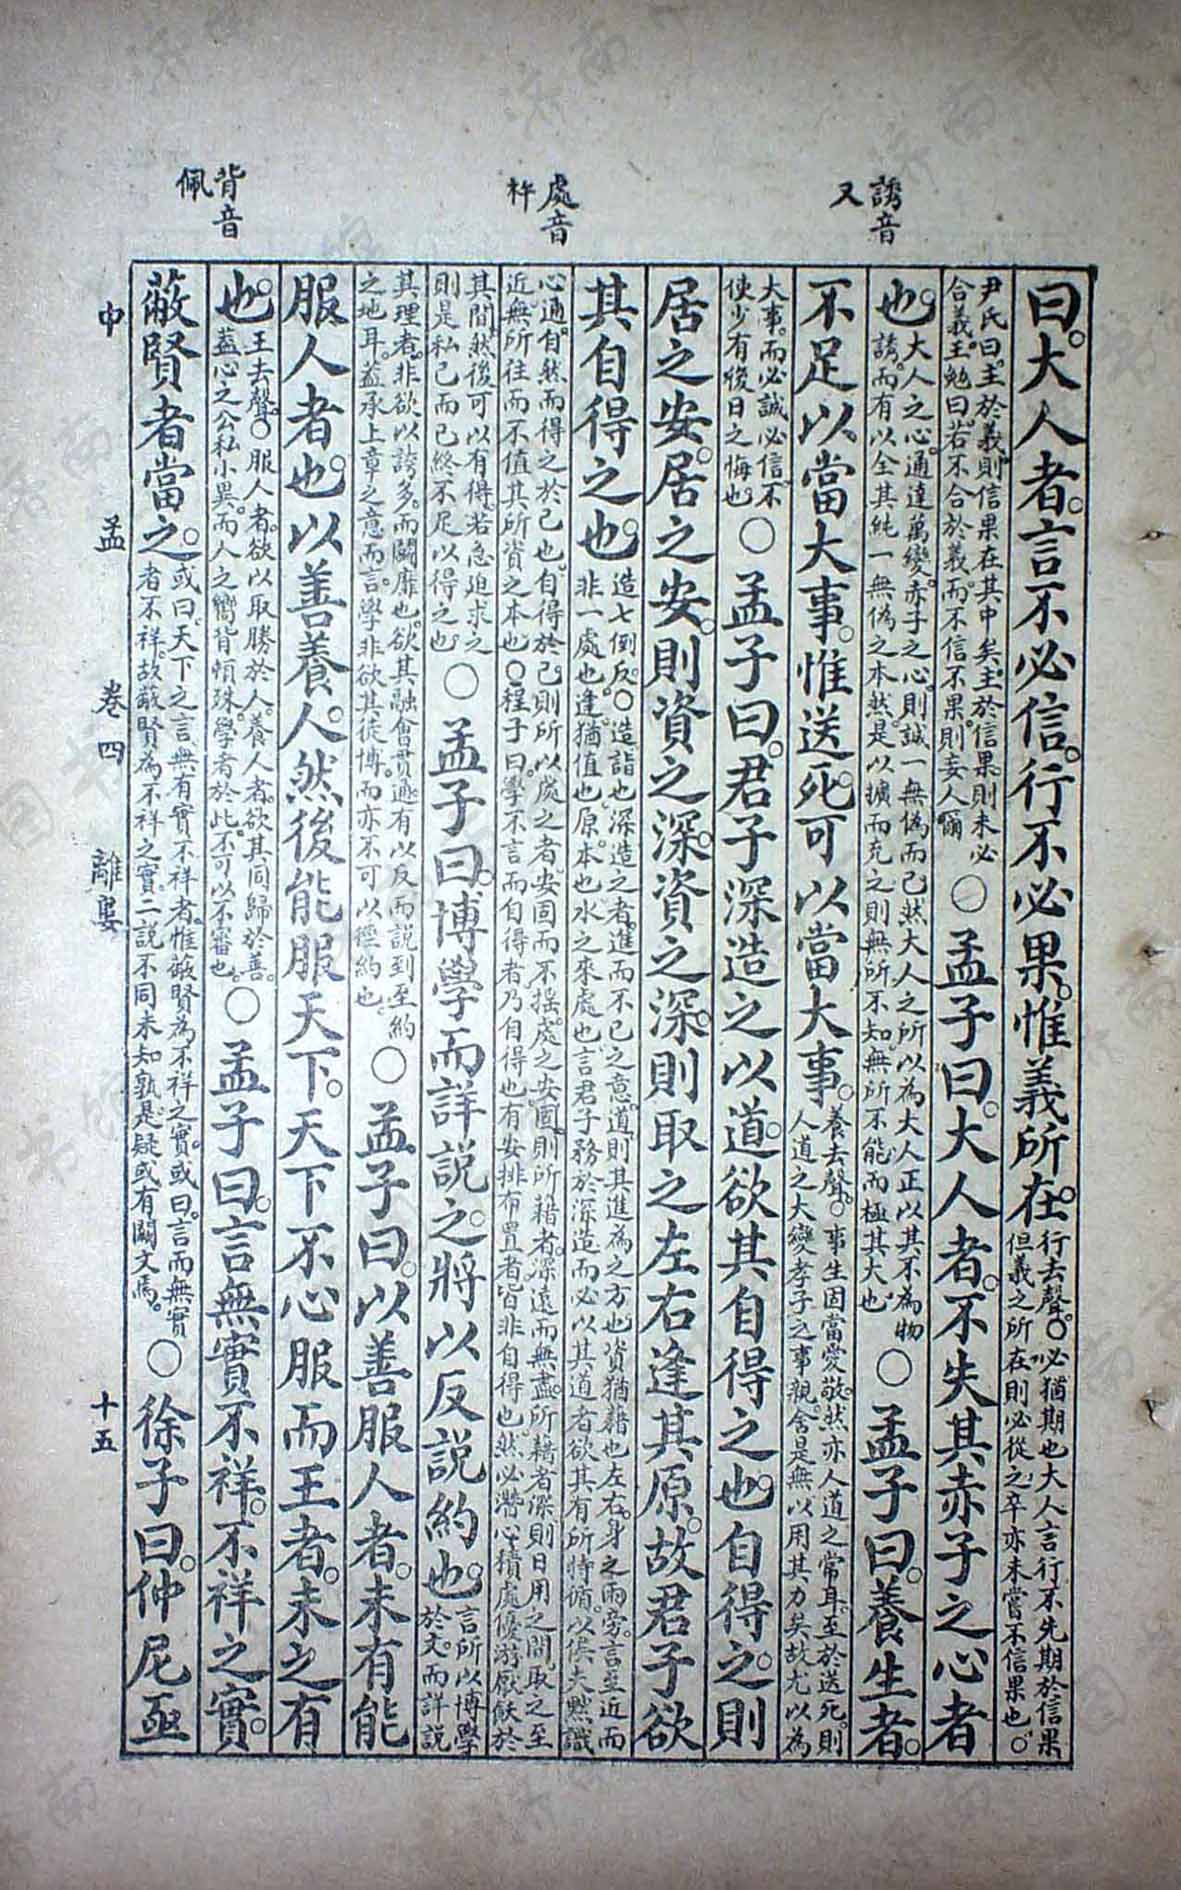 誘音又
處音杵
背音佩
曰。大人者。言不必信。行不必果。惟義所在。
行去聲。○必猶期也大人言行不先期於信果
但義之所在則必從之卒亦未嘗不信果也。○
尹氏曰。主於義則信果在其中矣。主於信果則未必
合義。王勉曰。若不合於義。而不信不果。則妄人爾
○孟子曰。大人者。不失其赤子之心者
也。
大人之心。通達萬變。赤子之心。則誠一無偽而已然大人之所以為大人正以其不為物
誘。而有以全其純一無偽之本然。是以擴而充之則無所不知無所不能而極其大也
○孟子曰。養生者。
不足以當大事。惟送死。可以當大事。
養去聲。○事生固當愛敬。然亦人道之常耳。至於送死。則
人道之大變孝子之事親。舍是無以用其力矣故尤以為
大事。而必誠必信不
使少有後日之悔也
○孟子曰。君子深造之以道。欲其自得之也。自得之。則
居之安。居之安。則資之深。資之深。則取之左右逢其原。故君子欲
其自得之也。
造七倒反。○造詣也。深造之者。進而不已之意。道則其進為之方也。資猶藉也左右。身之兩旁。言至近而
非一處也。逢。猶值也。原。本也水之來處也言君子務於深造而必以其道者欲其有所持循。以俟夫默識
心通。自然而得之於己也。自得於己。則所以處之者。安固而不搖。處之安固。則所藉者。深遠而無盡。所藉者深則日用之間。取之至
近無所往而不值其所資之本也○程子曰。學不言而自得者乃自得也有安排布置者皆非自得也。然必潛心積慮優游厭飫於
其間。然後可以有得。若急迫求之
則是私己而已終不足以得之也
○孟子曰。博學而詳說之。將以反說約也。
言所以博學
於文。而詳說
其理者。非欲以誇多。而鬭靡也。欲其融會貫通有以反而說到至約
之地耳。蓋承上章之意而言。學非欲其徒博。而亦不可以徑約也。
○孟子曰。以善服人者。未有能
服人者也。以善養人。然後能服天下。天下不心服而王者。未之有
也。
王去聲。○服人者。欲以取勝於人。養人者。欲其同歸於善。
蓋心之公私小異。而人之嚮背頓殊。學者於此。不可以不審也。
○孟子曰。言無實不祥。不祥之實。
蔽賢者當之。
或曰。天下之言無有實不祥者。惟蔽賢為不祥之實。或曰。言而無實
者不祥。故蔽賢為不祥之實。二說不同未知孰是。疑或有闕文焉。
○徐子曰。仲尼亟
中 孟 卷四 離婁 十五